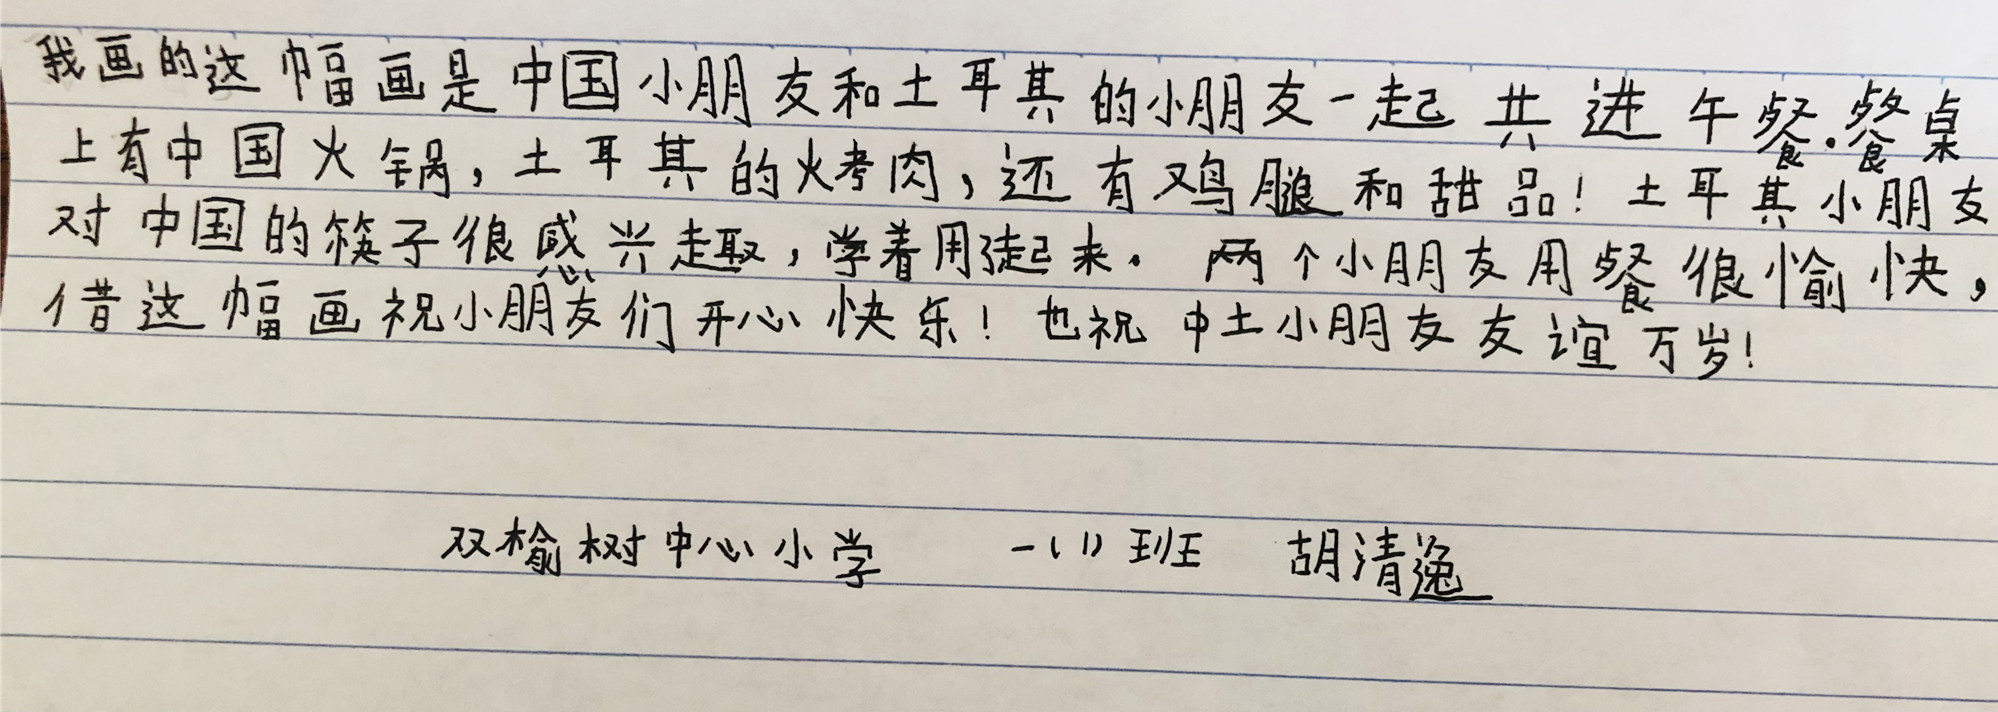 我画的这幅画是中国小朋友和土耳其的小朋友一起共进午餐.餐桌
上有中国火锅,土耳其的火烤肉,还有鸡腿和甜品!土耳其小朋友
对中国的筷子很感兴趣,学着用起来.两个小朋友用餐很愉快,
借这幅画祝小朋友们开心快乐!也祝中土小朋友友谊万岁!
双榆树中心小学 一(1)班 胡清逸